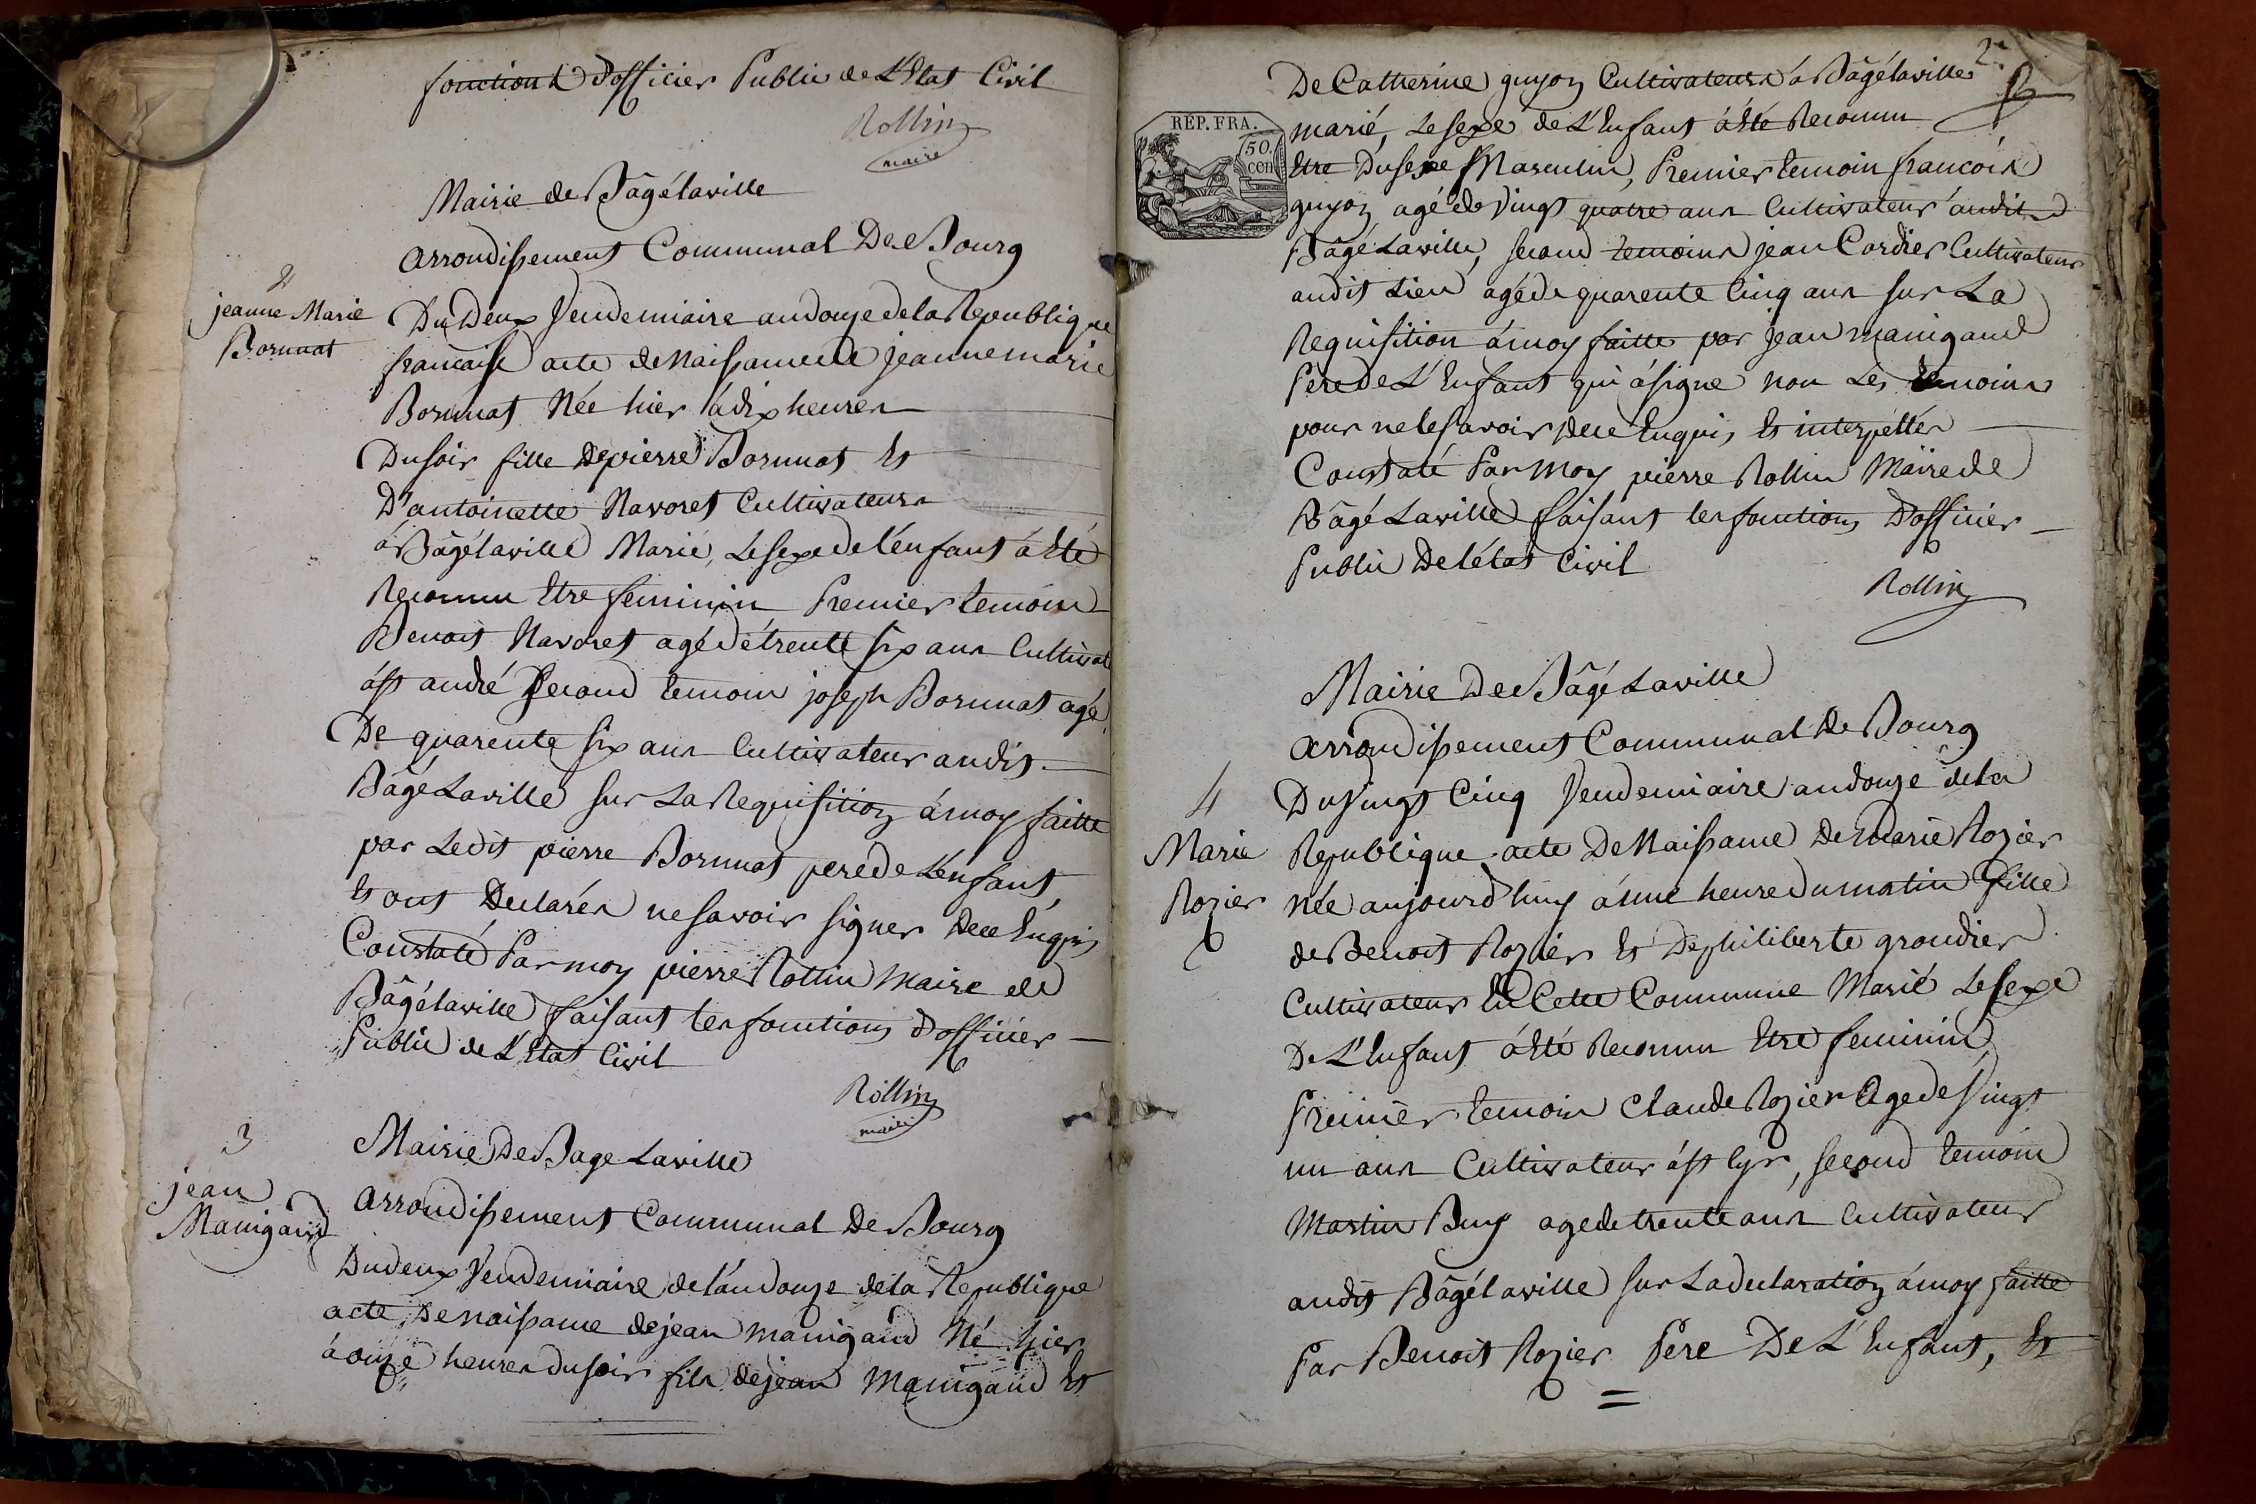 fonctions D'officier Public de L'Etat Civil
Rollin
maire
Mairie de Bâgélaville
arrondissement Communal De Bourg
2
jeanne Marie
Bornuat
Du Deux Vendemiaire an douze de la Republique
francaise acte de Naissance de jeanne marie
Bornuat Née hier à dix heures
Du soir fille De pierre Bornuat Et
D'antoinette Navoret Cultivateurs
à Bâgélaville Marié, Le sexe de l'énfant à Eté
Reconnu Etre feminin Premier temoin
Benoit Navoret agé dé trente six ans Cultivat
à st andré Second temoin joseph Bornuat agé
De quarente six ans Cultivateur audit
Bâgé Laville sur La Requisition à moy faitte
par Ledit pierre Bornuat pere de L'énfant,
Et ont Declarés ne savoir signer De ce Enquis
Constaté Par moy pierre Rollin Maire de
Bâgélaville faisant les fonctions d'officier
Public de L'Etat Civil
Rollin
maire
3
jean
Manigand
Mairie De Bage Laville
arrondissement Communal De Bourg
Du deux Vendemiaire de l'an douze de la Republique
acte De naissance de jean manigand Né hier
à onze heures du soir fils de jean Manigand Et
2
De Catherine guyon Cultivateurs à Bâgélaville
marié, Le sexe de L'Enfant à Eté Reconnu
REP. FRA.
50.
cen
Etre Du sexe Masculin, Premier temoin francois
guyon agé de Vingt quatre ans Cultivateur audit
Bâgé Laville, second temoins jean Cordier Cultivateur
audit Lieu agé de quarente Cinq ans sur La
Requisition à moy faitte par jean manigand
Pere de L'Enfant qui à signe non Les temoins
pour ne le savoir De ce Enquis, Et interpellés
Constaté Par Moy pierre Rollin Maire de
Bâgé Laville faisant les fonctions D'officier
Public De l'état Civil
Rollin
Mairie De Bâgé Laville
arrondissement Communal De Bourg
4
Marie
Rozier
Du Vingt Cinq Vendemiaire an douze de la
Republique acte De Naissance De Marie Rozier
née aujourd'huy à une heure du matin fille
de Benoit Rozier Et De philiberte grondier
Cultivateur En Cette Commune Marié Le sexe
De L'Enfant à Eté Reconnu Etre feminin
Premier temoin Claude Rozier Age de Vingt
un ans Cultivateur à st Cyr, second temoin
Martin Buy age de trente ans Cultivateur
audit Bâgélaville sur La declaration à moy faitte
Par Benoit Rozier Pere De L'Enfant, Et